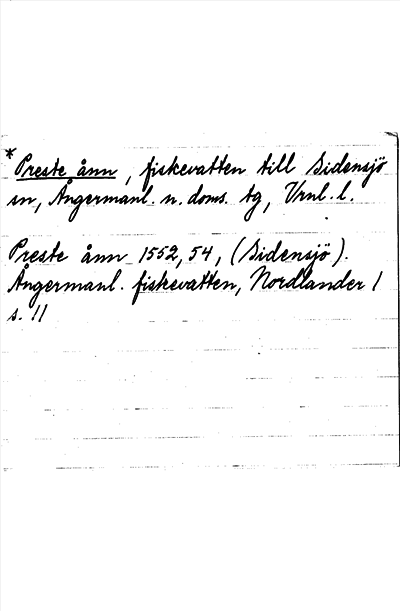 * Preste ånn, fiskevatten till Sidensjö
sn, Ångermanl. n. doms. tg, Vrnl. l.
Preste ånn 1552, 54, (Sidensjö).
Ångermanl. fiskevatten, Nordlander 1
s. 11